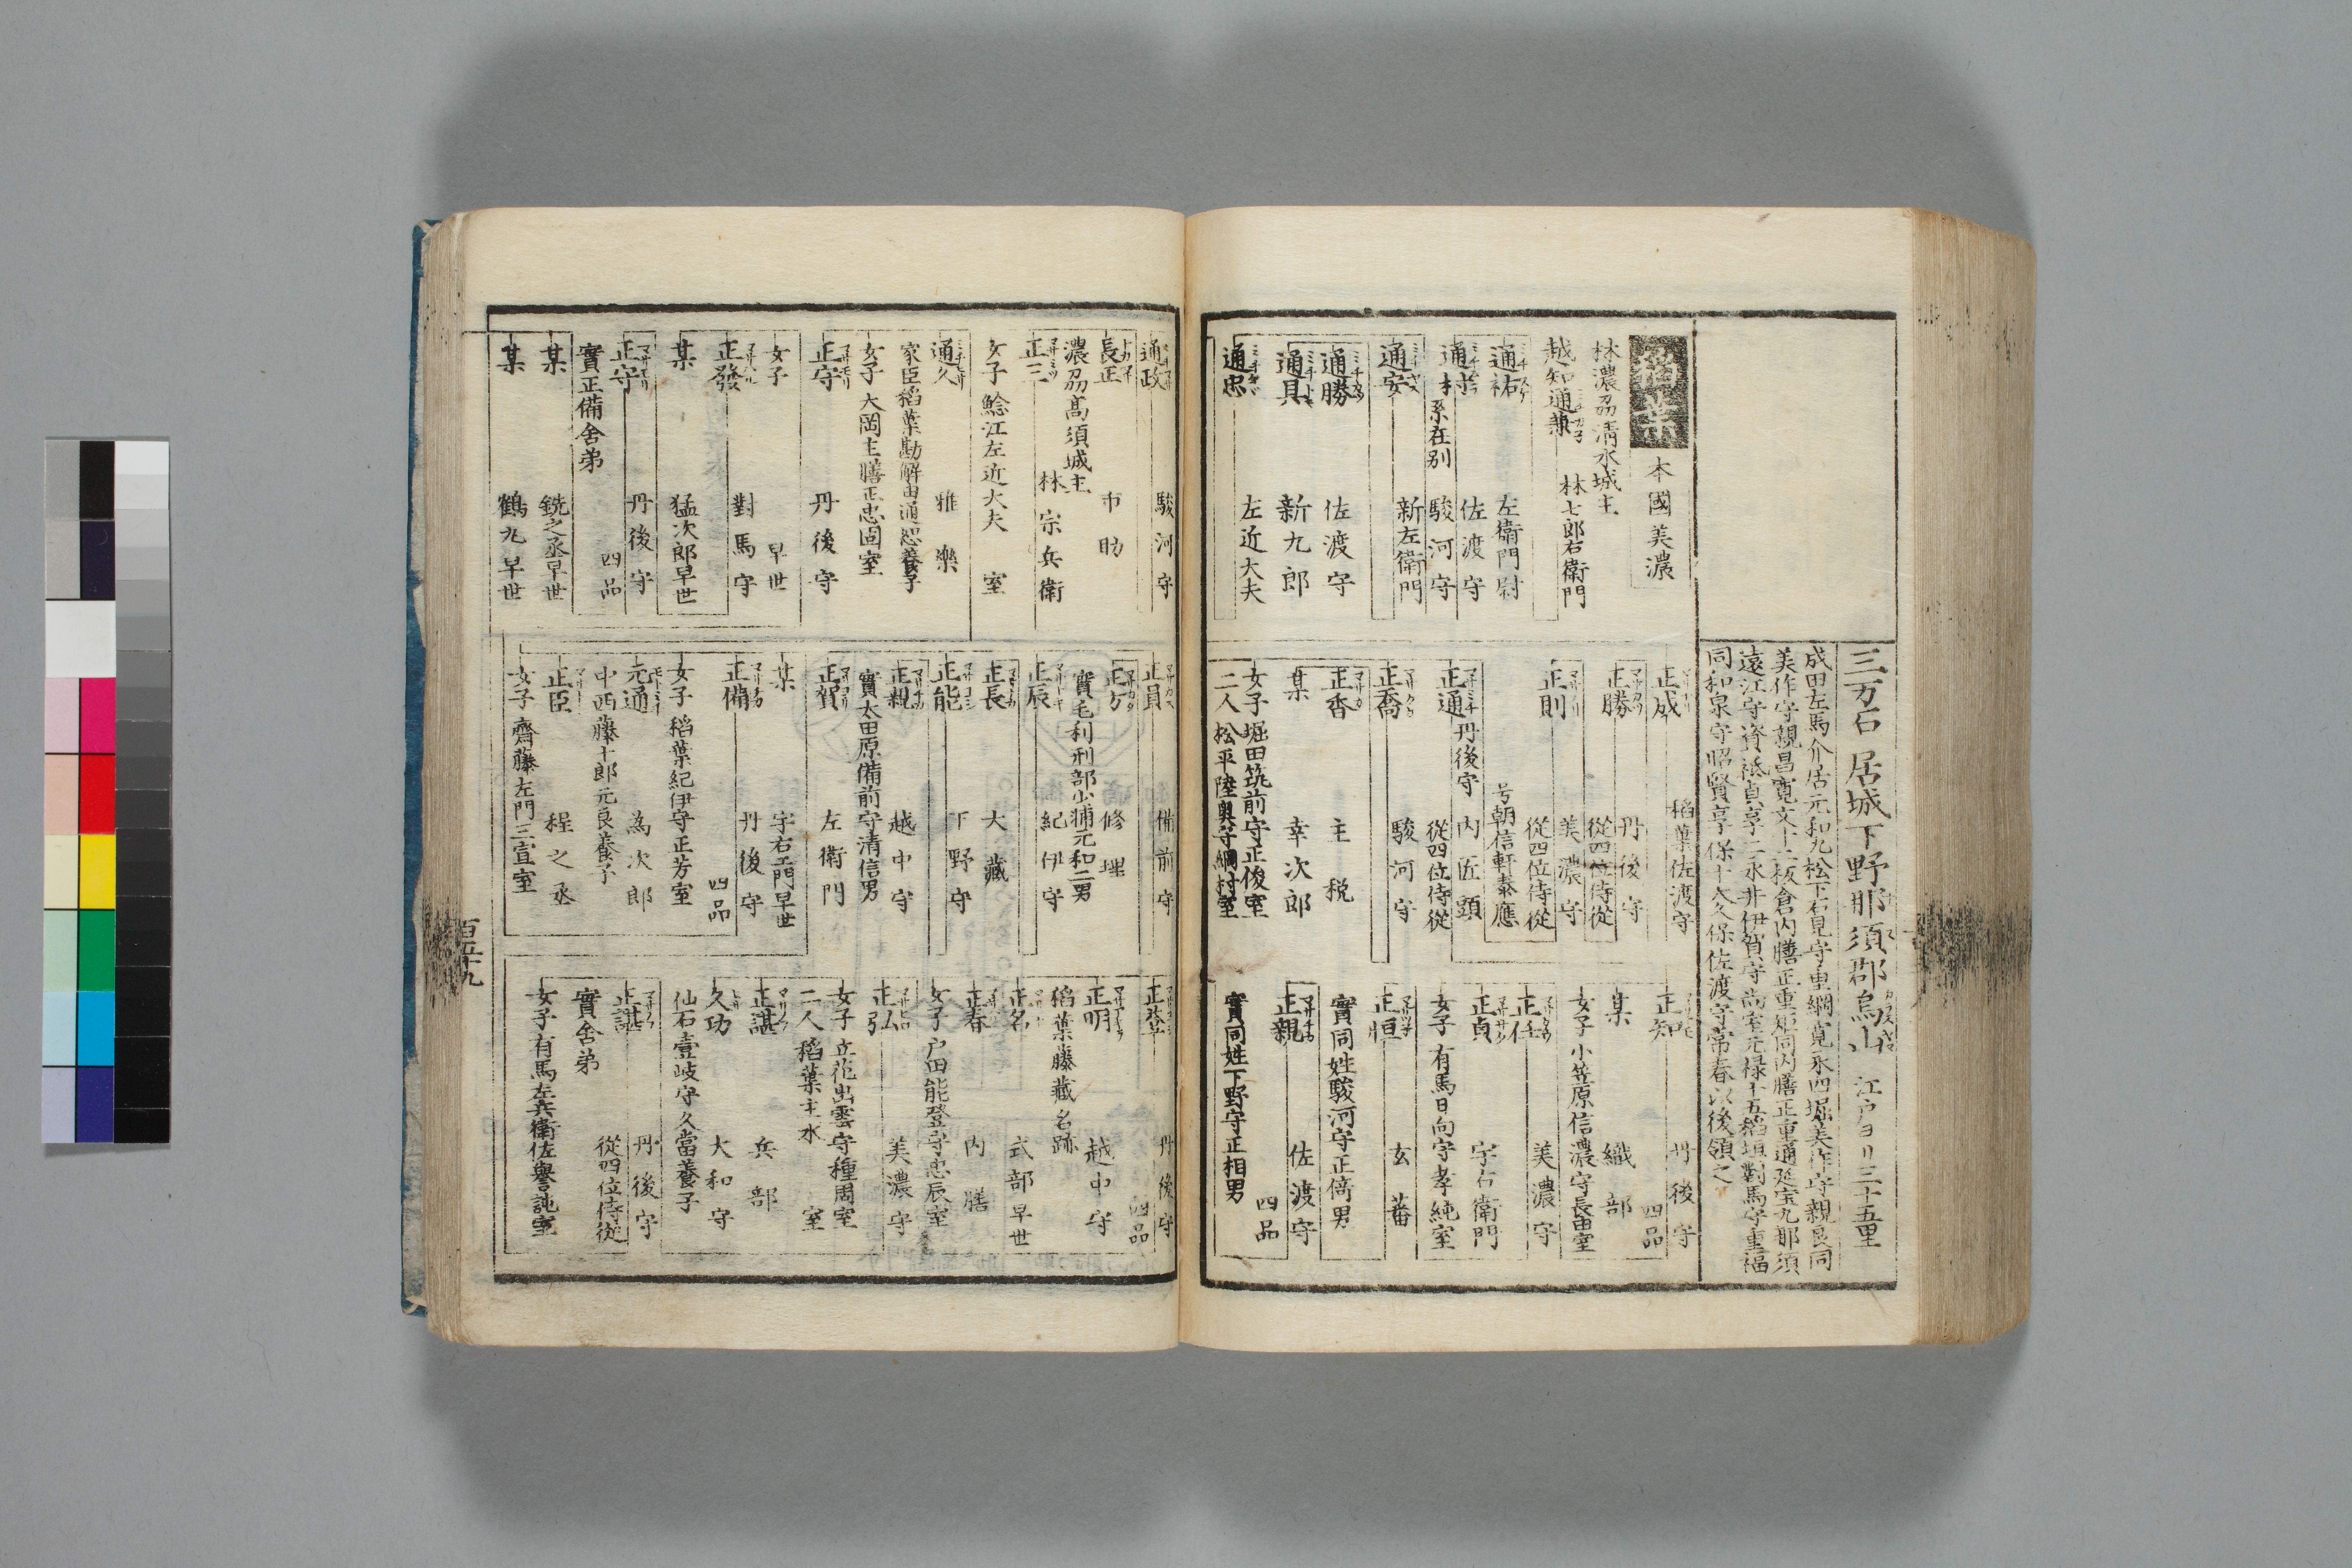 三万石 居城下野那須郡烏山 江戸ヨリ三十五里
成田左馬介居元和九松下石見守重綱寛永四堀美作守親良同
美作守親昌寛文十二板倉内膳正重矩同内膳正重通延宝九那須
遠江守資祗貞享二永井伊賀守尚室元禄十五稲垣對馬守重福
同和泉守昭賢享保十大久保佐渡守常春以後領之
稲葉 本國美濃
林濃刕清水城主
越知通兼 林七郎右衛門
通祐 左衛門尉
佐渡守
通村 系在別 駿河守
通安 新左衛門
通勝 佐渡守
通具 新九郎
通忠 左近大夫
正成 稻葉佐渡守
正勝 丹後守
従四位侍従
正則 美濃守
従四位侍従
号朝信軒泰應
正通 丹後守 内匠頭
従四位侍従
正喬 駿河守
正香 主税
某 幸次郎
女子 堀田筑前守正俊室
二人 松平陸奥守綱村室
正知 丹後守
四品
某 織部
女子 小笠原信濃守長重室
正任 美濃守
正貞 宇右衛門
女子 有馬日向守孝純室
正恒 玄蕃
實同姓駿河守正倚男
正親 佐渡守
四品
實同姓下野守正相男
通政 駿河守
長正 市助
濃刕髙須城主
正三 林宗兵衛
女子 鯰江左近大夫室
通久 雅樂
家臣稻葉勘解由通恕養子
女子 大岡主膳正忠固室
正守 丹後守
女子 早世
正發 對馬守
某 猛次郎早世
正守 丹後守
四品
實正備舍弟
某 銑之丞早世
某 鶴丸早世
正員 備前守
正方 修理
實毛利刑部少輔元和二男
正辰 紀伊守
正長 大藏
正能 下野守
正親 越中守
實太田原備前守清信男
正賀 左衛門
某 宇右エ門早世
正備 丹後守
四品
女子 稻葉紀伊守正芳室
元通 為次郎
中西藤十郎元良養子
正臣 程之丞
女子 齊藤左門三宣室
正登 丹後守
四品
正明 越中守
稻葉藤藏名跡
正名 式部早世
正春 内膳
女子 戸田能登守忠辰室
正弘 美濃守
女子 立花出雲守種周室
二人 稻葉主水室
正諶 兵部
久功 大和守
仙石壹岐守久當養子
正諶 丹後守
従四位侍従
實舍弟
女子 有馬左兵衛佐譽純室
百五十九